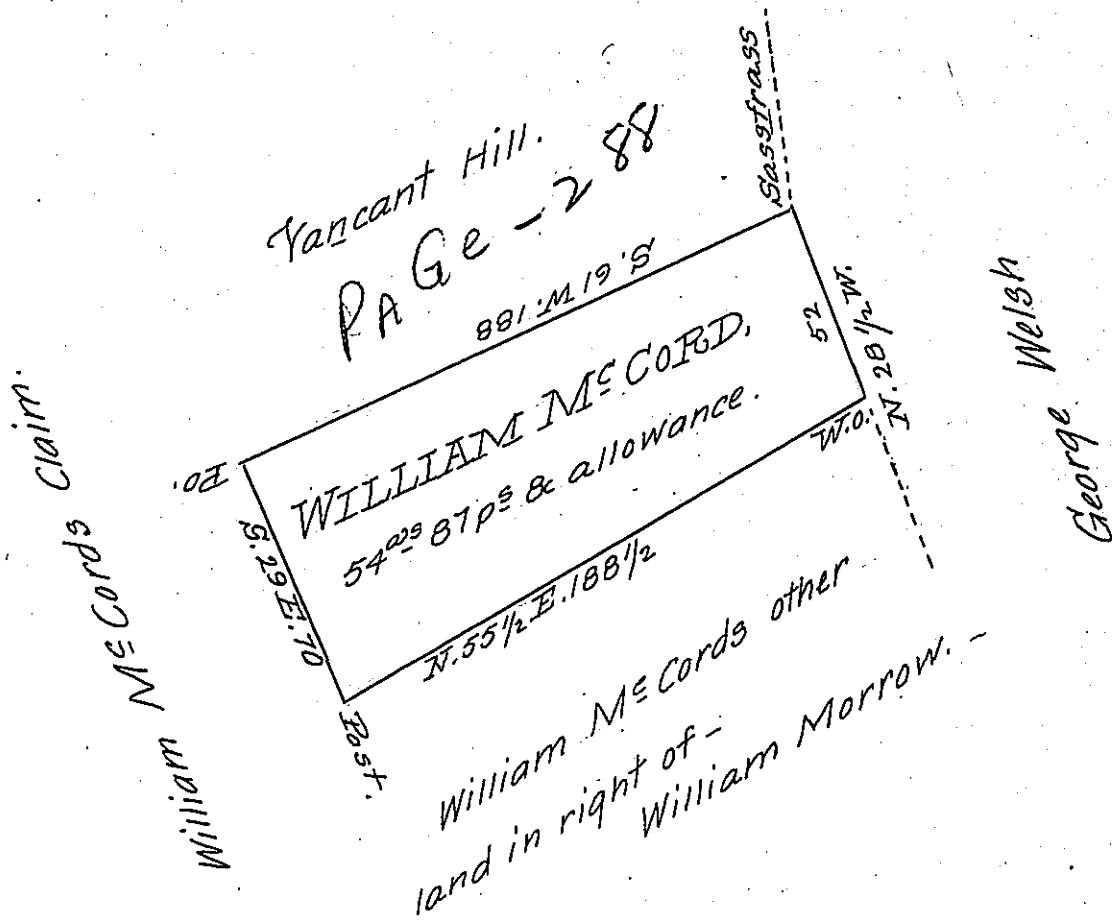 Vancant Hill.
PAGe - 288
Sassfrass
S. 61 W. 188
Po.
WILLIAM McCORD.
54 acs 87 ps & allowance.
52
N. 28 1/2 W.
W.O.
S. 29 E. 70
N. 55 1/2 E. 188 1/2
Post.
William McCords Claim.
George Welsh
William McCords other
land in right of -
William Morrow. -